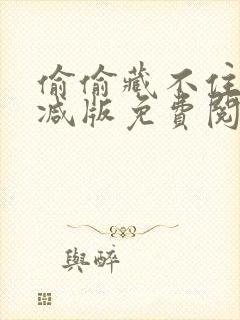 偷偷藏不住
减版免費閱
與醉